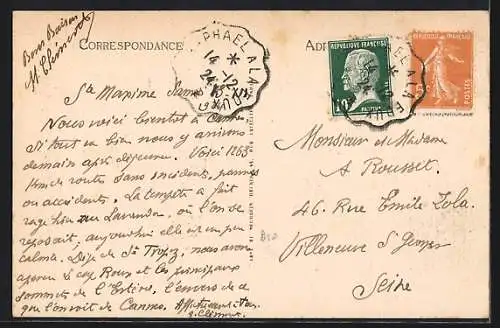 Bons Baisers
M. Clément
CORRESPONDANCE
RAPHAEL A LA
14-12
24
RÉPUBLIQUE FRANÇAISE
POSTES
Ste Maxime Samedi
Nous voici bientôt à Cannes
Si tout va bien nous y arrivons
demain après déjeuner. Voici 1263
kms de route sans incidents, pannes
ou accidents. La tempête a fait
rage hier au Lavandou, où l'on se
reposait, aujourd'hui elle est un peu
calmée. Déjà de St Tropez, nous avons
aperçu le cap Roux et les principaux
sommets de l'Estérel, l'envers de ce
que l'on voit de Cannes. Affectueusement à tous
Clément
Monsieur et Madame
A Rousset
46. Rue Emile Zola.
Villeneuve St Georges
Seine